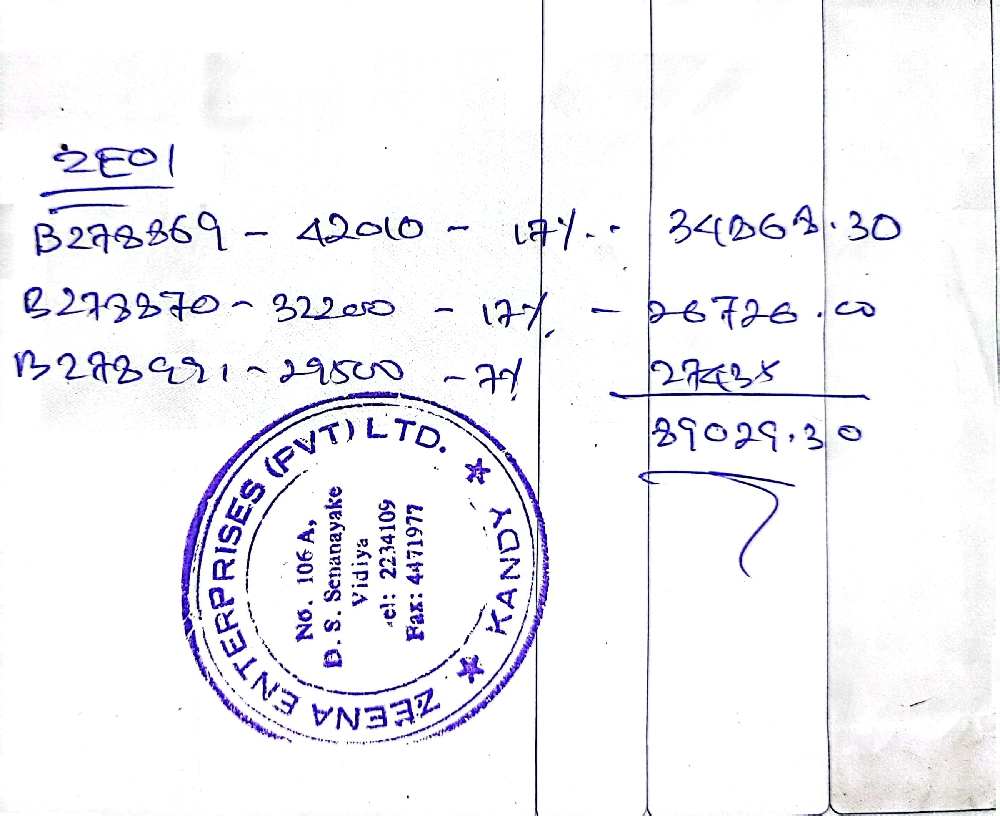 ZE01
B278869 - 42010 - 17%. - 34868.30
B278870 - 32200 - 17%. - 26726.00
B278991 - 29500 - 7% 27435
89029.30
ZEENA ENTERPRISES (PVT) LTD.
★ KANDY ★
No. 106 A,
D. S. Senanayake
Vidiya
Tel: 2234109
Fax: 4471977